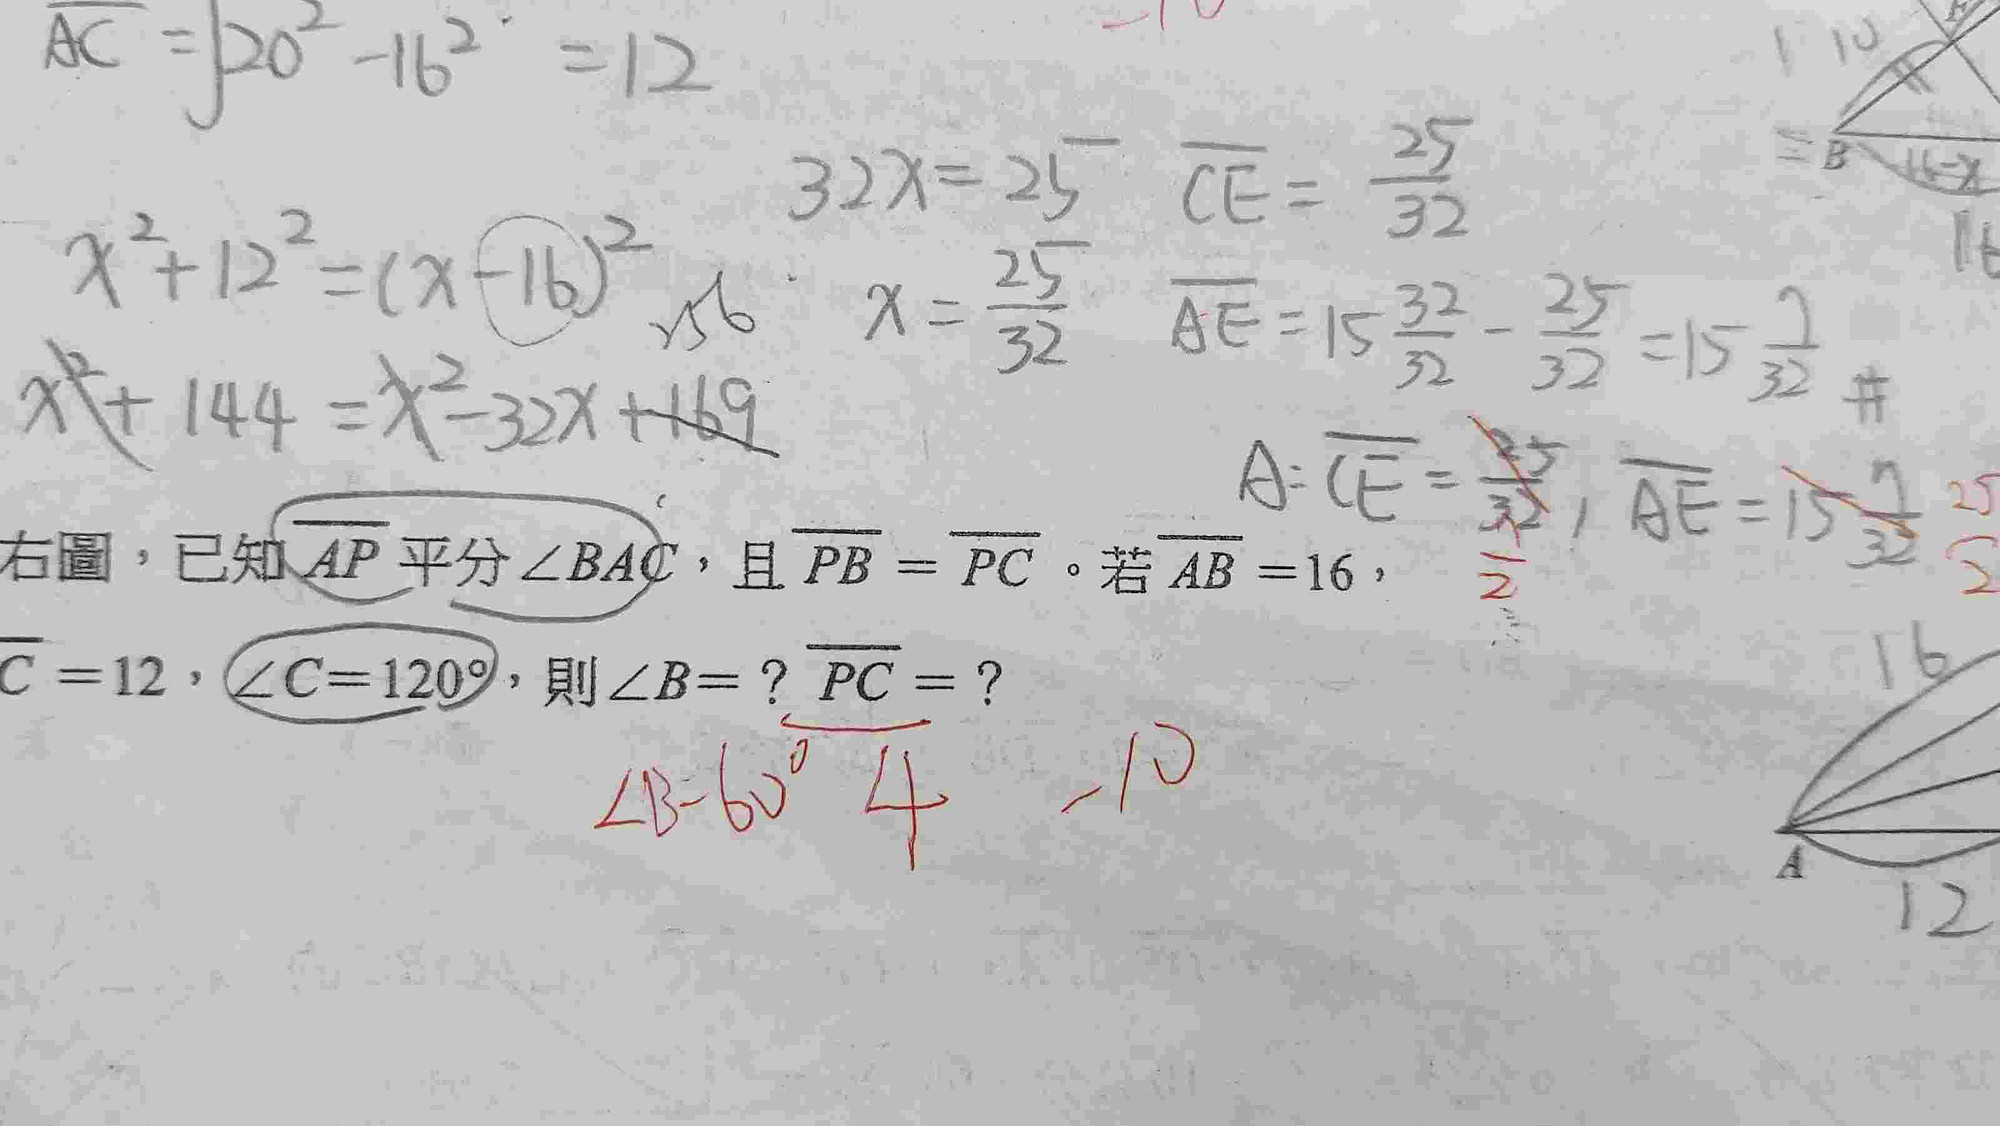 AC = √20² - 16² = 12
-10
10
B
16-x
16
32x = 25 CE = 25/32
x² + 12² = (x - 16)² x = 25/32 AE = 15 32/32 - 25/32 = 15 7/32 #
256
x² + 144 = x² - 32x + 169
A: CE = 25/32, AE = 15 7/32 25/2
7/2
右圖，已知 AP 平分∠BAC，且 PB = PC。若 AB =16，
C =12，∠C=120°，則∠B=？ PC =？
∠B=60° 4 -10
16
A
12